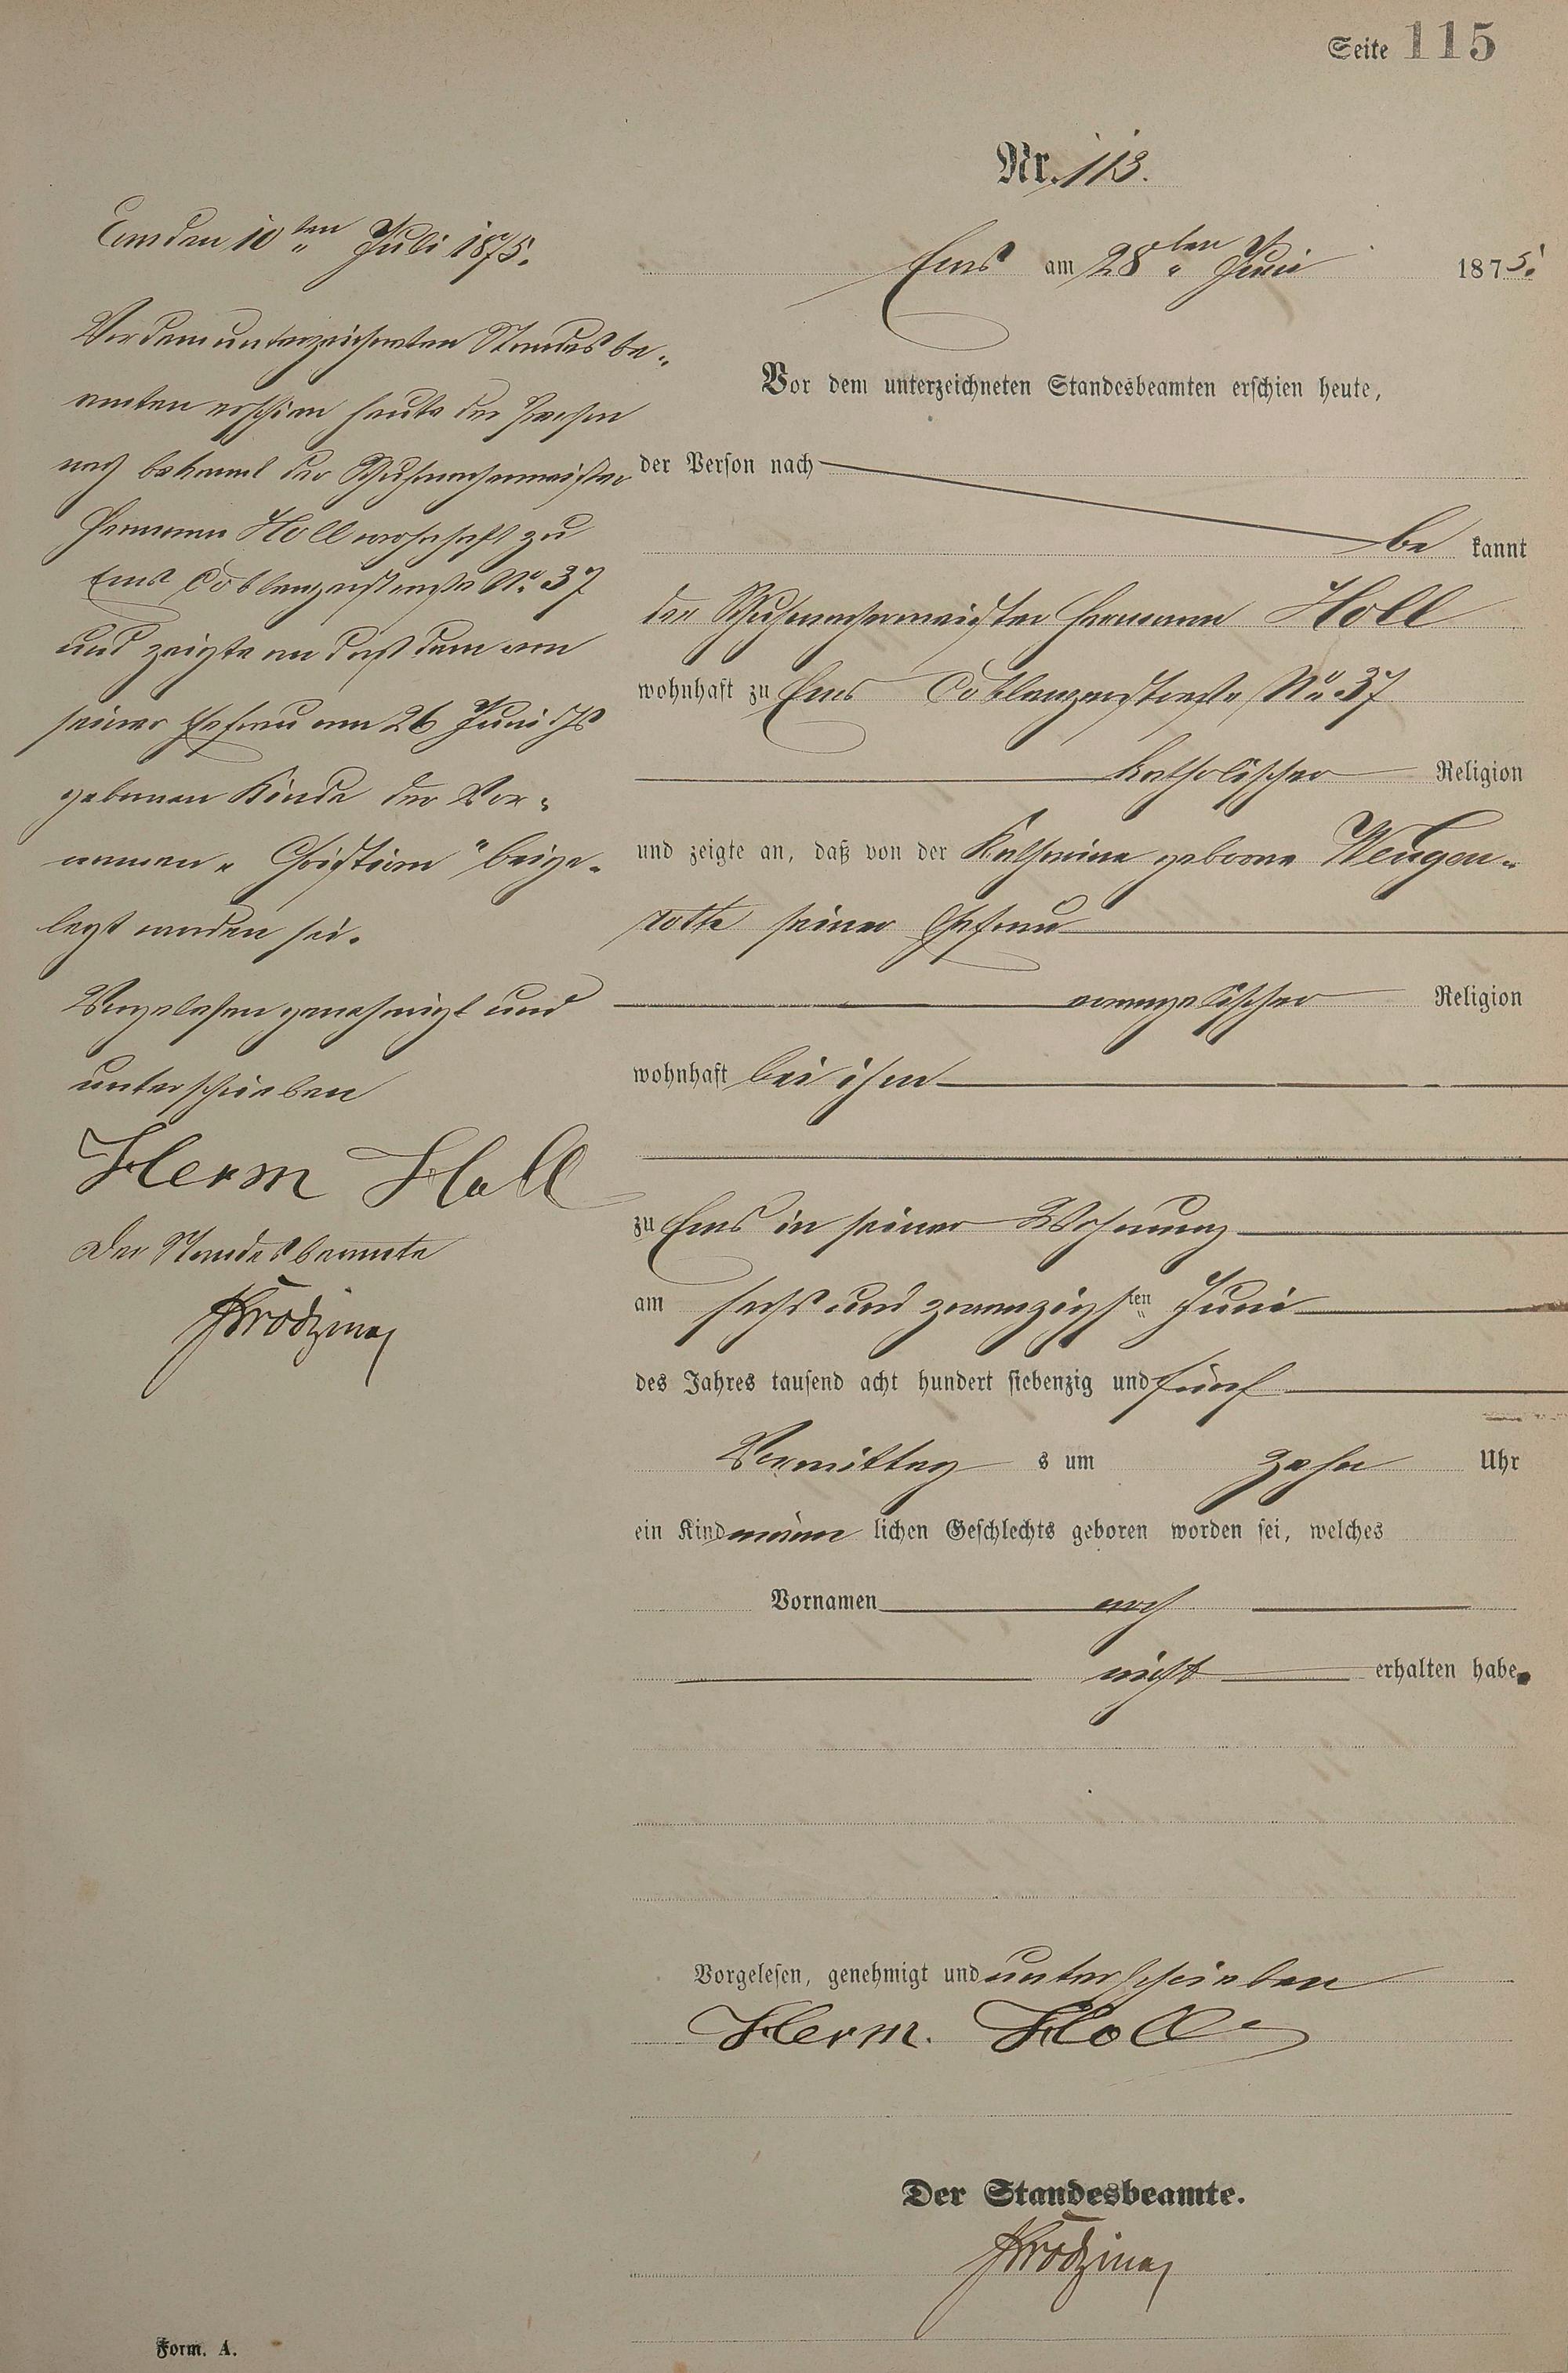 Seite 115
Nr. 113.
Ems am 28ten Juni 1875.
Vor dem unterzeichneten Standesbeamten erschien heute,
der Person nach
be kannt
der Schuhmachermeister Hermann Holl
wohnhaft zu Ems Coblenzerstraße No 37
katholischer Religion
und zeigte an, daß von der Katharina geborne Weugen-
roth seiner Ehefrau
evangelischer Religion
wohnhaft bei ihm
zu Ems in seiner Wohnung
am sechs und zwanzigsten Juni
des Jahres tausend acht hundert siebenzig und fünf
Vormittag s um zehn Uhr
ein Kind männ lichen Geschlechts geboren worden sei, welches
Vornamen noch
nicht erhalten habe.
Vorgelesen, genehmigt und unterschrieben
Herm. Holl
Der Standesbeamte.
Form. A.
Ems den 10ten Juli 1875.
Vor dem unterzeichneten Standesbe-
amten erschien heute der Person
nach bekannt der Schuhmachermeister
Hermann Holl wohnhaft zu
Ems Coblenzerstraße No. 37
und zeigte an daß dem von
seiner Ehefrau am 26 Juni d Js
gebornen Kinde der Vor-
namen „Christian" beige-
legt worden sei.
Vorgelesen genehmigt und
unterschrieben
Herm Holl
Der Standesbeamte